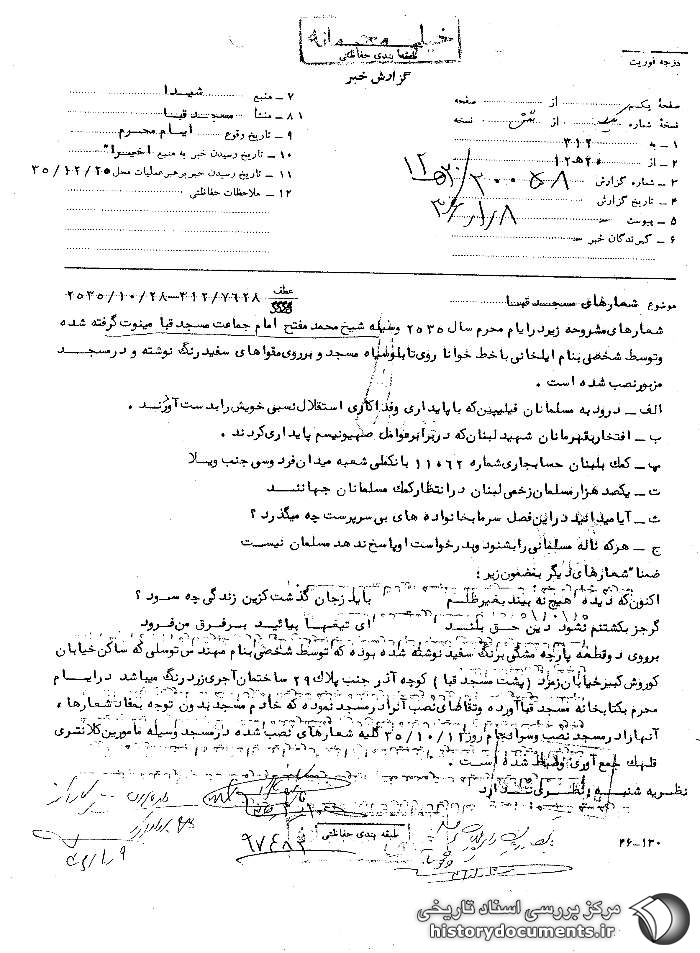 خیلی محرمانه
طبقه بندی حفاظتی
گزارش خبر
درجه فوریت
صفحه یکم از صفحه
نسخه شماره از نسخه
۱ ـ به ۳۱۲
۲ ـ از ۱۲ﻫ۲۰
۳ ـ شماره گزارش
۴ ـ تاریخ گزارش
۵ ـ پیوست
۶ ـ گیرندگان خبر
۷ ـ منبع شیدا
۸ ـ منشأ مسجد قبا
۹ ـ تاریخ وقوع ایام محرم
۱۰ ـ تاریخ رسیدن خبر به منبع اخیراً
۱۱ ـ تاریخ رسیدن خبر برهبر عملیات محل ۳۵/۱۲/۲۵
۱۲ ـ ملاحظات حفاظتی
موضوع شعارهای مسجد قبا
عطف ۳۱۲/۷۶۲۸ ـ ۲۵۳۵/۱۰/۲۸
شعارهای مشروحه زیر در ایام محرم سال ۲۵۳۵ وسیله شیخ محمد مفتح امام جماعت مسجد قبا مینوت گرفته شده
و توسط شخصی بنام ایلخانی با خط خوانا روی تابلو سیاه مسجد و برروی مقواهای سفید رنگ نوشته و در مسجد
مزبور نصب شده است .
الف ـ درود به مسلمانان فیلیپین که با پایداری و فداکاری استقلال نسبی خویش را بدست آورند .
ب ـ افتخار بقهرمانان شهید لبنان که در برابر عوامل صهیونیسم پایداری کردند .
پ ـ کمک بلبنان حسابجاری شماره ۱۱۰۶۲ بانک ملی شعبه میدان فردوسی جنب ویلا
ت ـ یکصد هزار مسلمان زخمی لبنان در انتظار کمک مسلمانان جهانند
ث ـ آیا میدانید در این فصل سرما بخانواده های بی سرپرست چه میگذرد ؟
ج ـ هرکه ناله مسلمانی را بشنود و بدرخواست او پاسخ ندهد مسلمان نیست
ضمناً شعارهای دیگر بمضمون زیر :
اکنون که دیده هیچ نه بیند بغیر ظلم باید زجان گذشت کزین زندگی چه سود ؟
گر جز بکشتنم نشود دین حق بلند ای تیغها بیائید بر فرق من فرود
برروی دو قطعه پارچه مشگی برنگ سفید نوشته شده بوده که توسط شخصی بنام مهندس توسلی که ساکن خیابان
کوروش کبیر خیابان زمرد ( پشت مسجد قبا ) کوچه آذر جنب پلاک ۲۹ ساختمان آجری زرد رنگ میباشد در ایام
محرم بکتابخانه مسجد قبا آورده و تقاضای نصب آنرا در مسجد نموده که خادم مسجد بدون توجه بمفاد شعارها
آنها را در مسجد نصب و سرانجام روز ۳۵/۱۰/۱۲ کلیه شعارهای نصب شده در مسجد وسیله مامورین کلانتری
قلهک جمع آوری و ضبط شده است .
نظریه شنبه . نظری ندارد
طبقه بندی حفاظتی
۹۷۴۸۲
۲۶ـ۱۳۰
مرکز بررسی اسناد تاریخی
historydocuments.ir